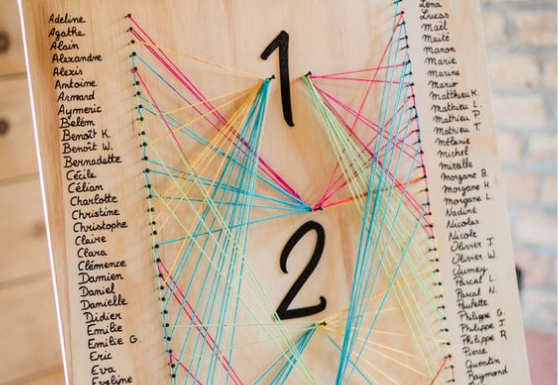 Adeline
Agathe
Alain
Alexandre
Alexis
Antoine
Armand
Aymeric
Belém
Benoît K.
Benoît W.
Bernadette
Cécile
Célian
Charlotte
Christine
Christophe
Claire
Clara
Clémence
Damien
Daniel
Danielle
Didier
Emilie
Emilie G.
Eric
Eva
Eveline
1
2
Léna
Lucas
Maël
Maïté
Manon
Marie
Marine
Mario
Matthieu K.
Mathieu L.
Mathieu P.
Mathieu T.
Mélanie
michel
mireille
Morgane B.
Morgane H.
Morgane L.
Nadine
Nicolas
Nicole
Olivier J.
Olivier W.
Oumey
Pascal L.
Pascal N.
Paulette
Philippe G.
Philippe J.
Philippe R.
Pierre
Quentin
Raymond